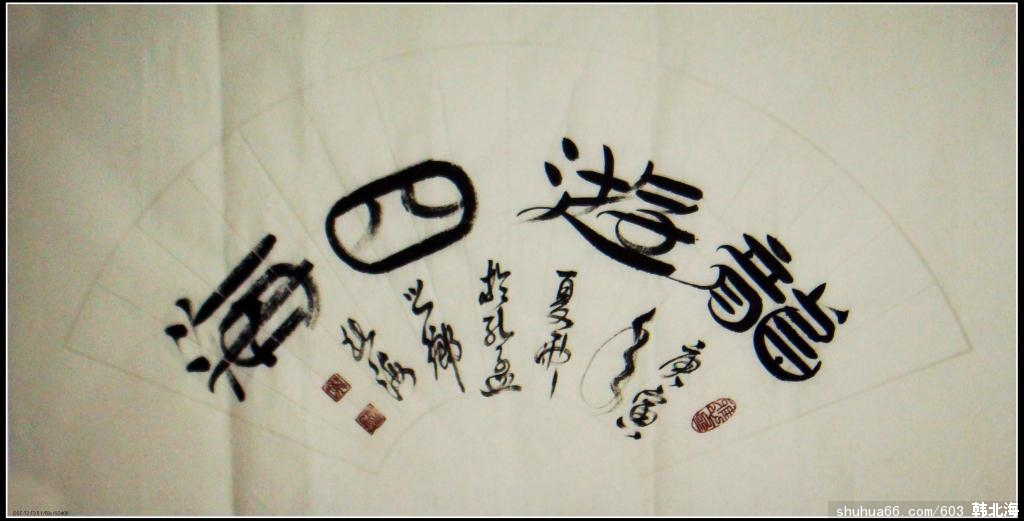 龍遊四海
庚寅年
夏月
於孔孟
之鄉
北海
shuhua66.com/603 韩北海